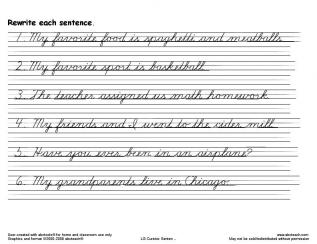 Rewrite each sentence.
1. My favorite food is spaghetti and meatballs
2. My favorite sport is basketball
3. The teacher assigned us math homework
4. My friends and I went to the cider mill
5. Have you ever been in an airplane?
6. My grandparents live in Chicago
Scan created with abcteach® for home and classroom use only
www.abcteach.com
Graphics and format ©2005 abcteach®
May not be sold/redistributed without permission